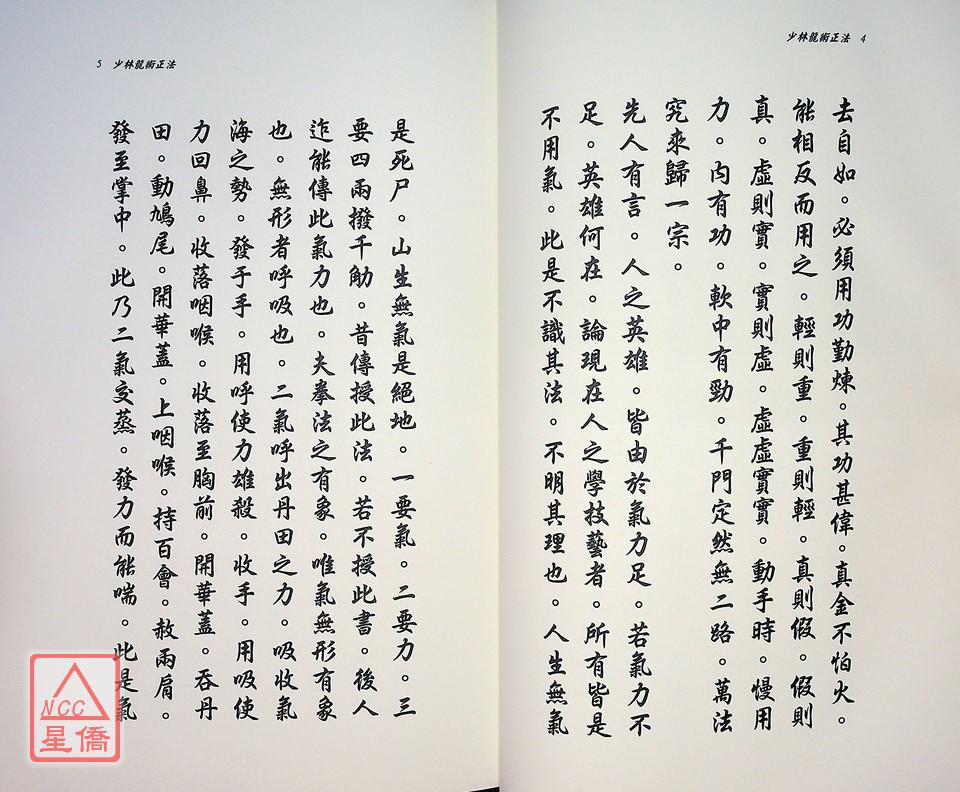 少林龍術正法 4
去自如。必須用功勤煉。其功甚偉。真金不怕火。
能相反而用之。輕則重。重則輕。真則假。假則
真。虛則實。實則虛。虛虛實實。動手時。慢用
力。內有功。軟中有勁。千門定然無二路。萬法
究來歸一宗。
先人有言。人之英雄。皆由於氣力足。若氣力不
足。英雄何在。論現在人之學技藝者。所有皆是
不用氣。此是不識其法。不明其理也。人生無氣
5 少林龍術正法
是死尸。山生無氣是絕地。一要氣。二要力。三
要四兩撥千觔。昔傳授此法。若不授此書。後人
迮能傳此氣力也。夫拳法之有象。唯氣無形有象
也。無形者呼吸也。二氣呼出丹田之力。吸收氣
海之勢。發于手。用呼使力雄殺。收手。用吸使
力回鼻。收落咽喉。收落至胸前。開華蓋。吞丹
田。動鳩尾。開華蓋。上咽喉。持百會。赦兩肩。
發至掌中。此乃二氣交蒸。發力而能喘。此是氣
NCC
星僑